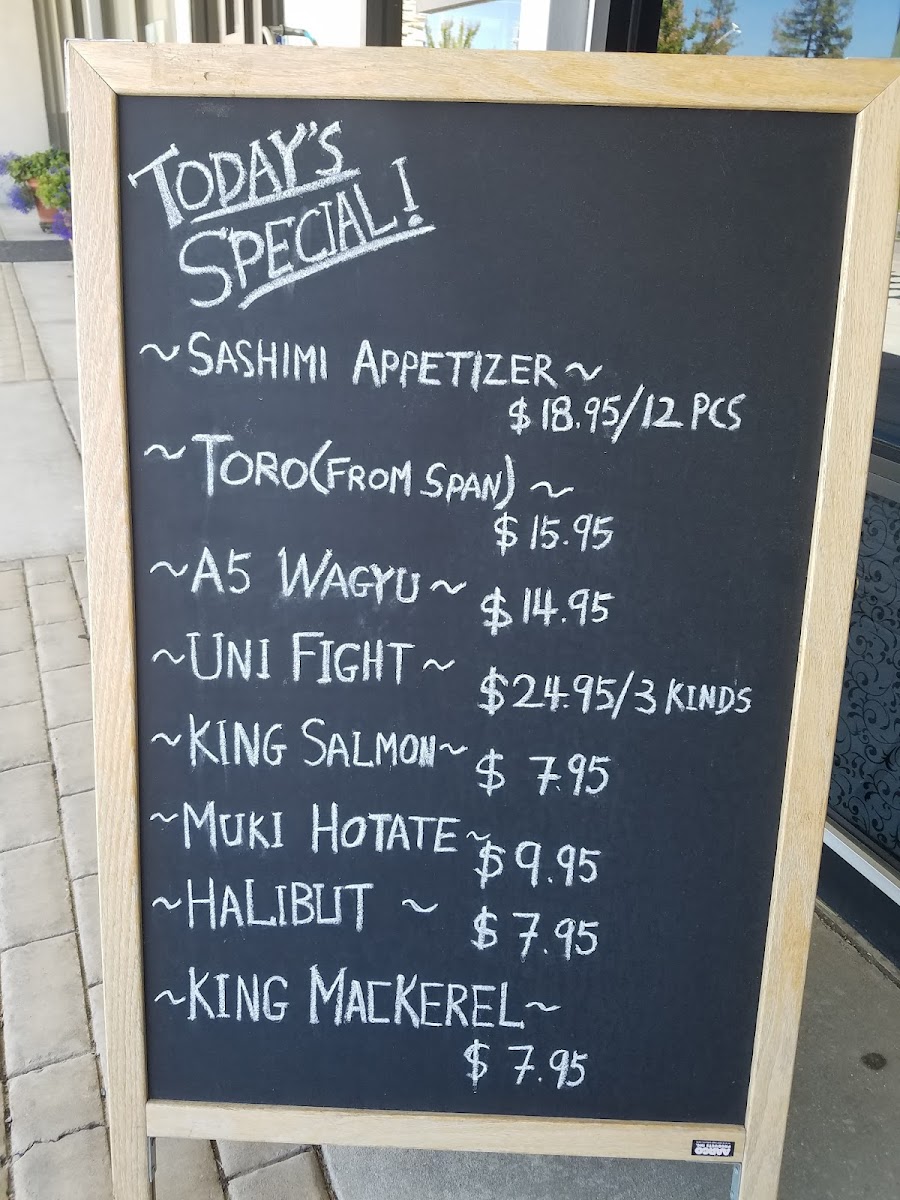 TODAY'S
SPECIAL!
~SASHIMI APPETIZER~
$18.95/12 PCS
~TORO(FROM SPAN)~
$15.95
~A5 WAGYU~ $14.95
~UNI FIGHT~ $24.95/3 KINDS
~KING SALMON~ $7.95
~MUKI HOTATE~ $9.95
~HALIBUT~ $7.95
~KING MACKEREL~
$7.95
AARCO